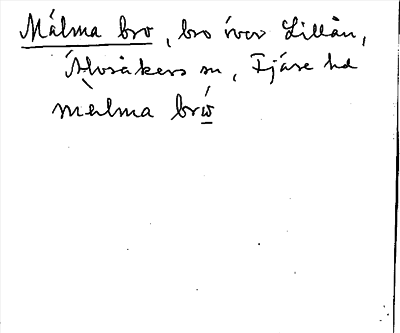 Målma bro, bro över Lillån,
Älvsåkers sn, Fjäre hd
mèlma brẃ